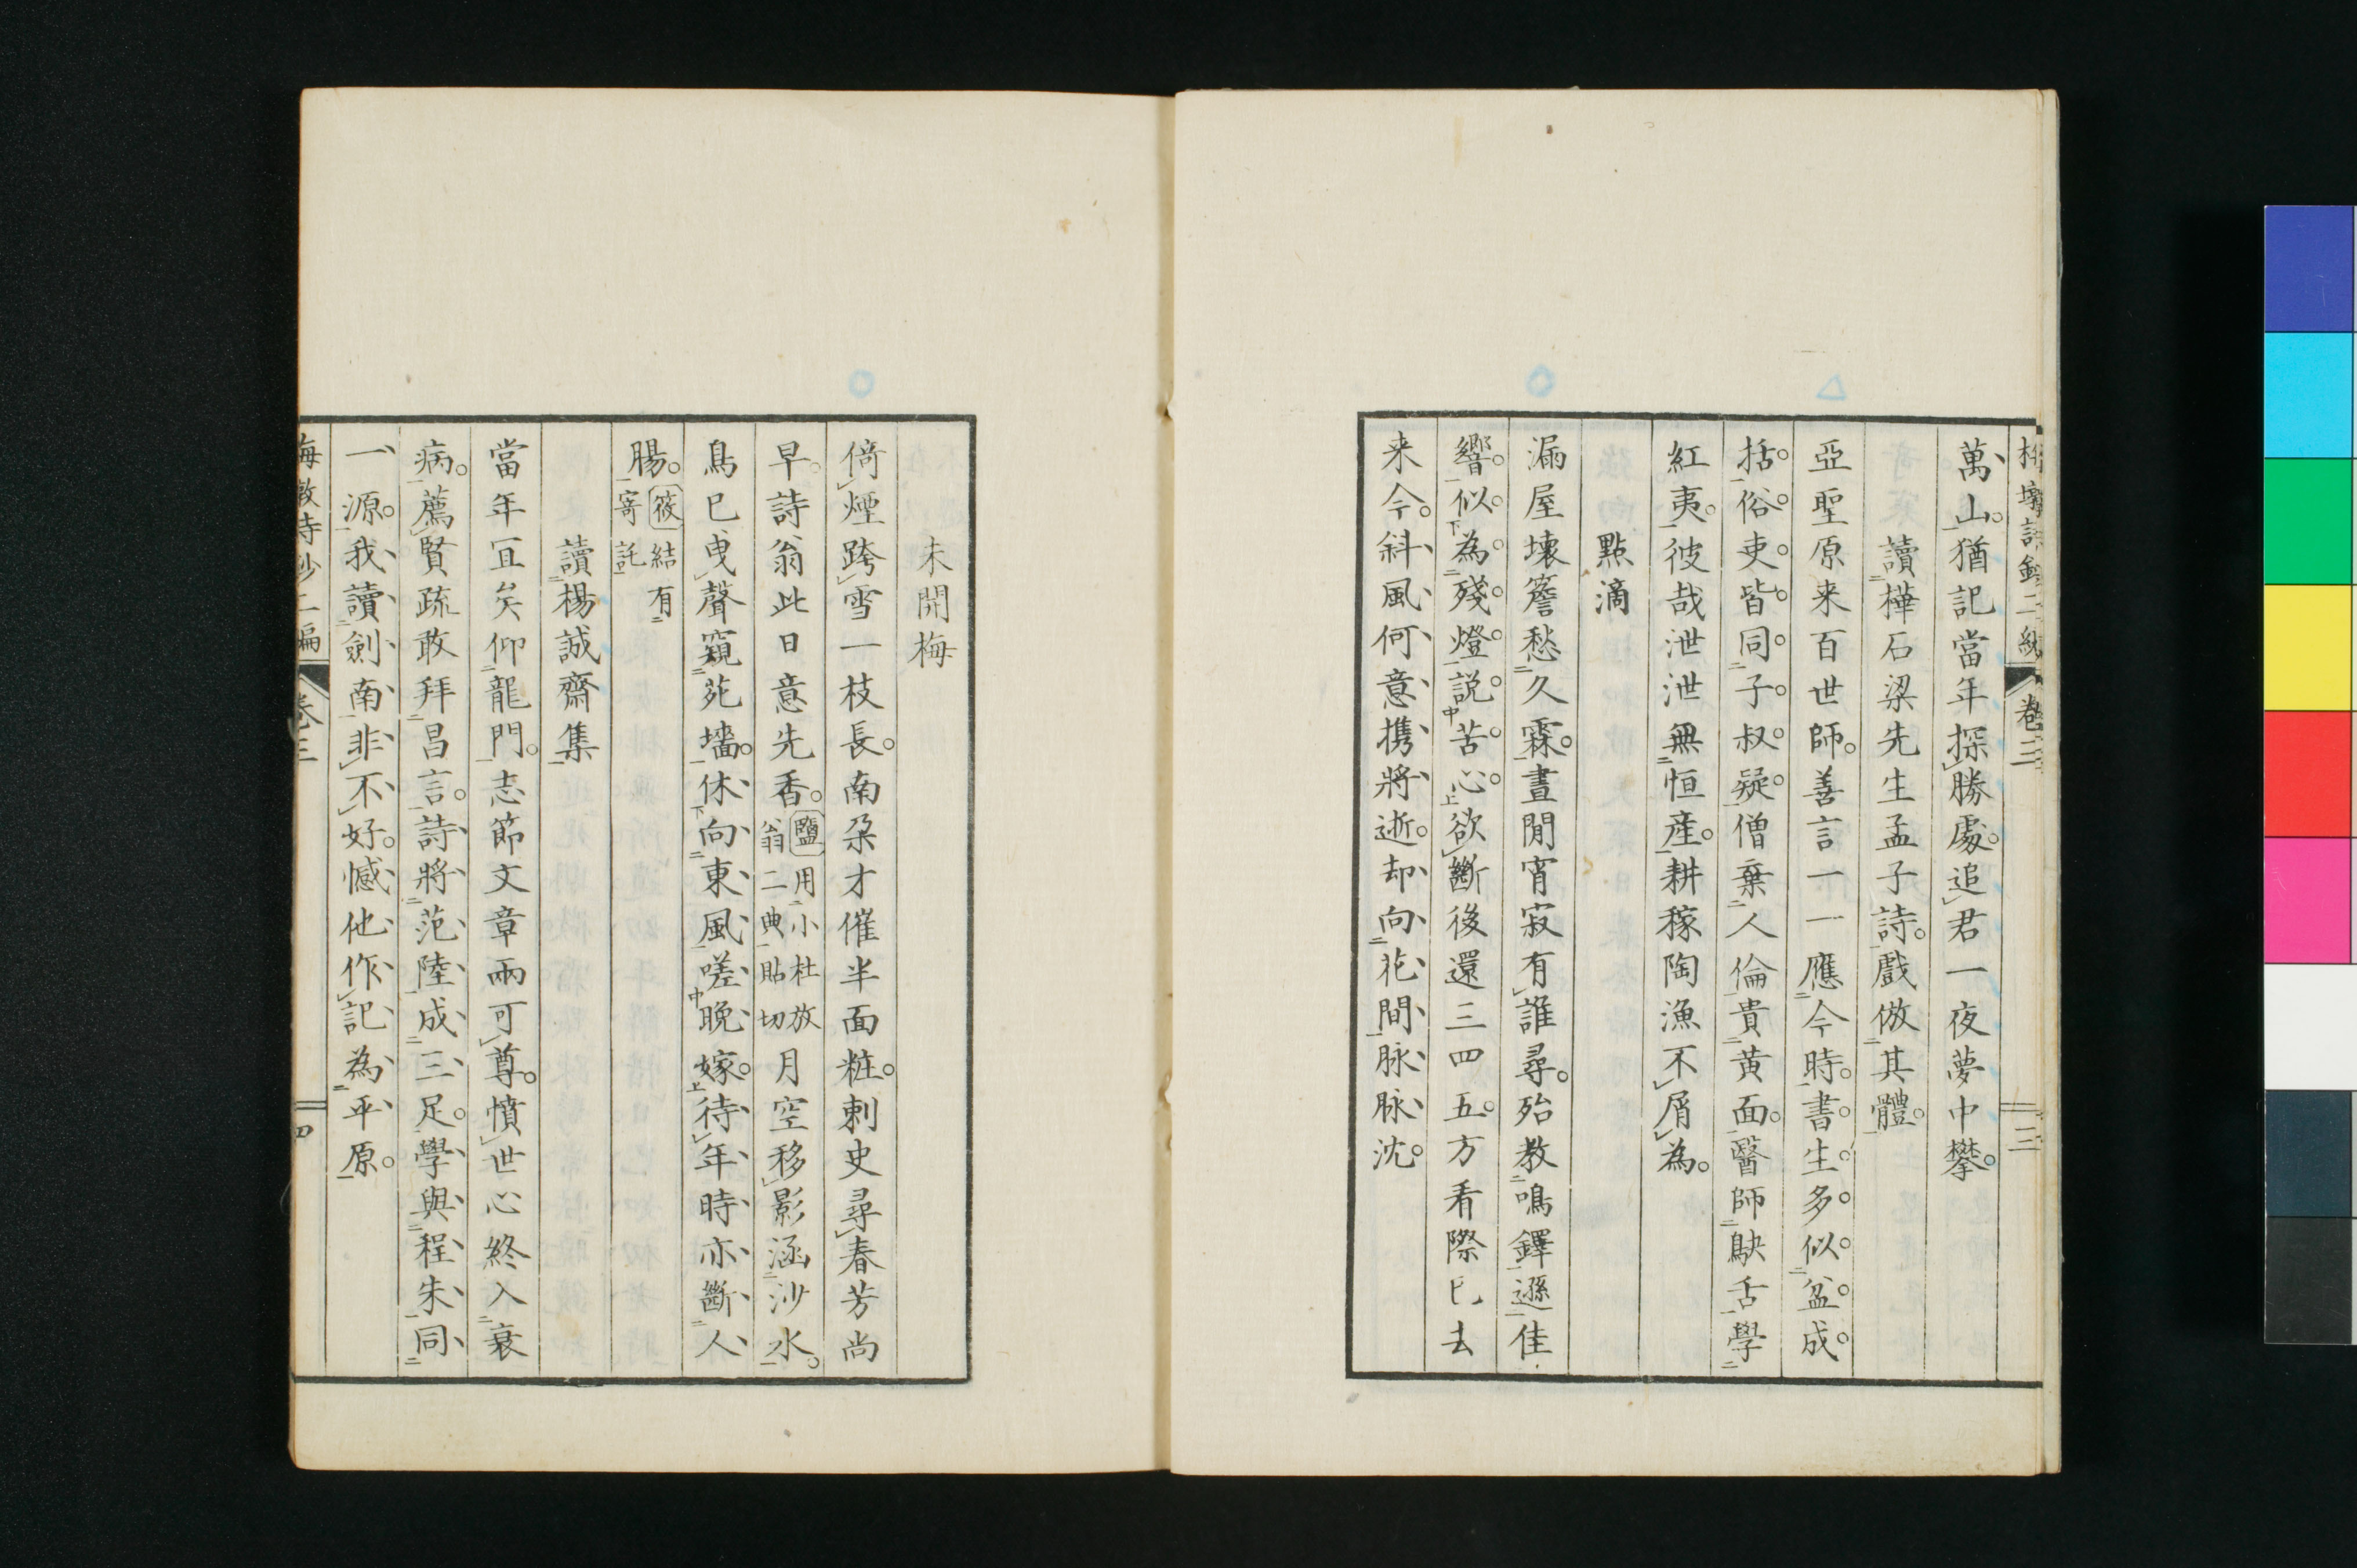 萬山猶記當年探勝處追君一夜夢中攀
讀樺石梁先生孟子詩戲倣其體
亞聖原来百世師善言一一應今時書生多似盆成
括俗吏皆同子叔疑僧棄人倫貴黄面醫師鴃舌學
紅夷彼哉泄泄無恒産耕稼陶漁不屑為
點滴
漏屋壞簷愁久霖晝閒宵寂有誰尋殆教鳴鐸遜佳
響似為殘燈説苦心欲斷後還三四五方看際已去
来今斜風何意携將逝却向花間脉脉沈
卷三
三
未開梅
倚煙跨雪一枝長南朶才催半面粧刺史尋春芳尚
早詩翁此日意先香鹽用小杜放翁二典貼切月空移影涵沙水
鳥已曳聲窺苑墻休向東風嗟晚嫁待年時亦斷人
腸筱結有寄託
讀楊誠齋集
當年冝矣仰龍門志節文章兩可尊憤世心終入衰
病薦賢疏敢拜昌言詩將范陸成三足學與程朱同
一源我讀劍南非不好憾他作記為平原
卷三
四